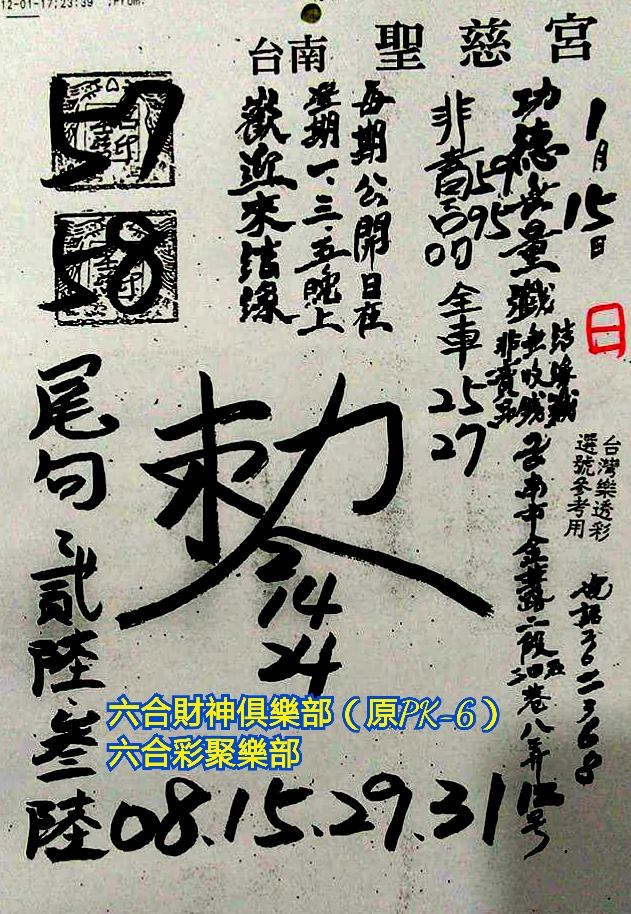 12-01-17;23:39 ;From:
台南 聖慈宮
1月15日
日
功德無量
非賣品
59
95
全車 25
27
非賣品
每期公開日在
星期一、三、五晚上
歡迎來結緣
57
58
台灣樂透彩
選號參考用
台南市
二段
巷八弄12号
勅令
14
24
尾句 貳陸、叁陸
六合財神俱樂部（原PK-6）
六合彩聚樂部
08.15.29.31